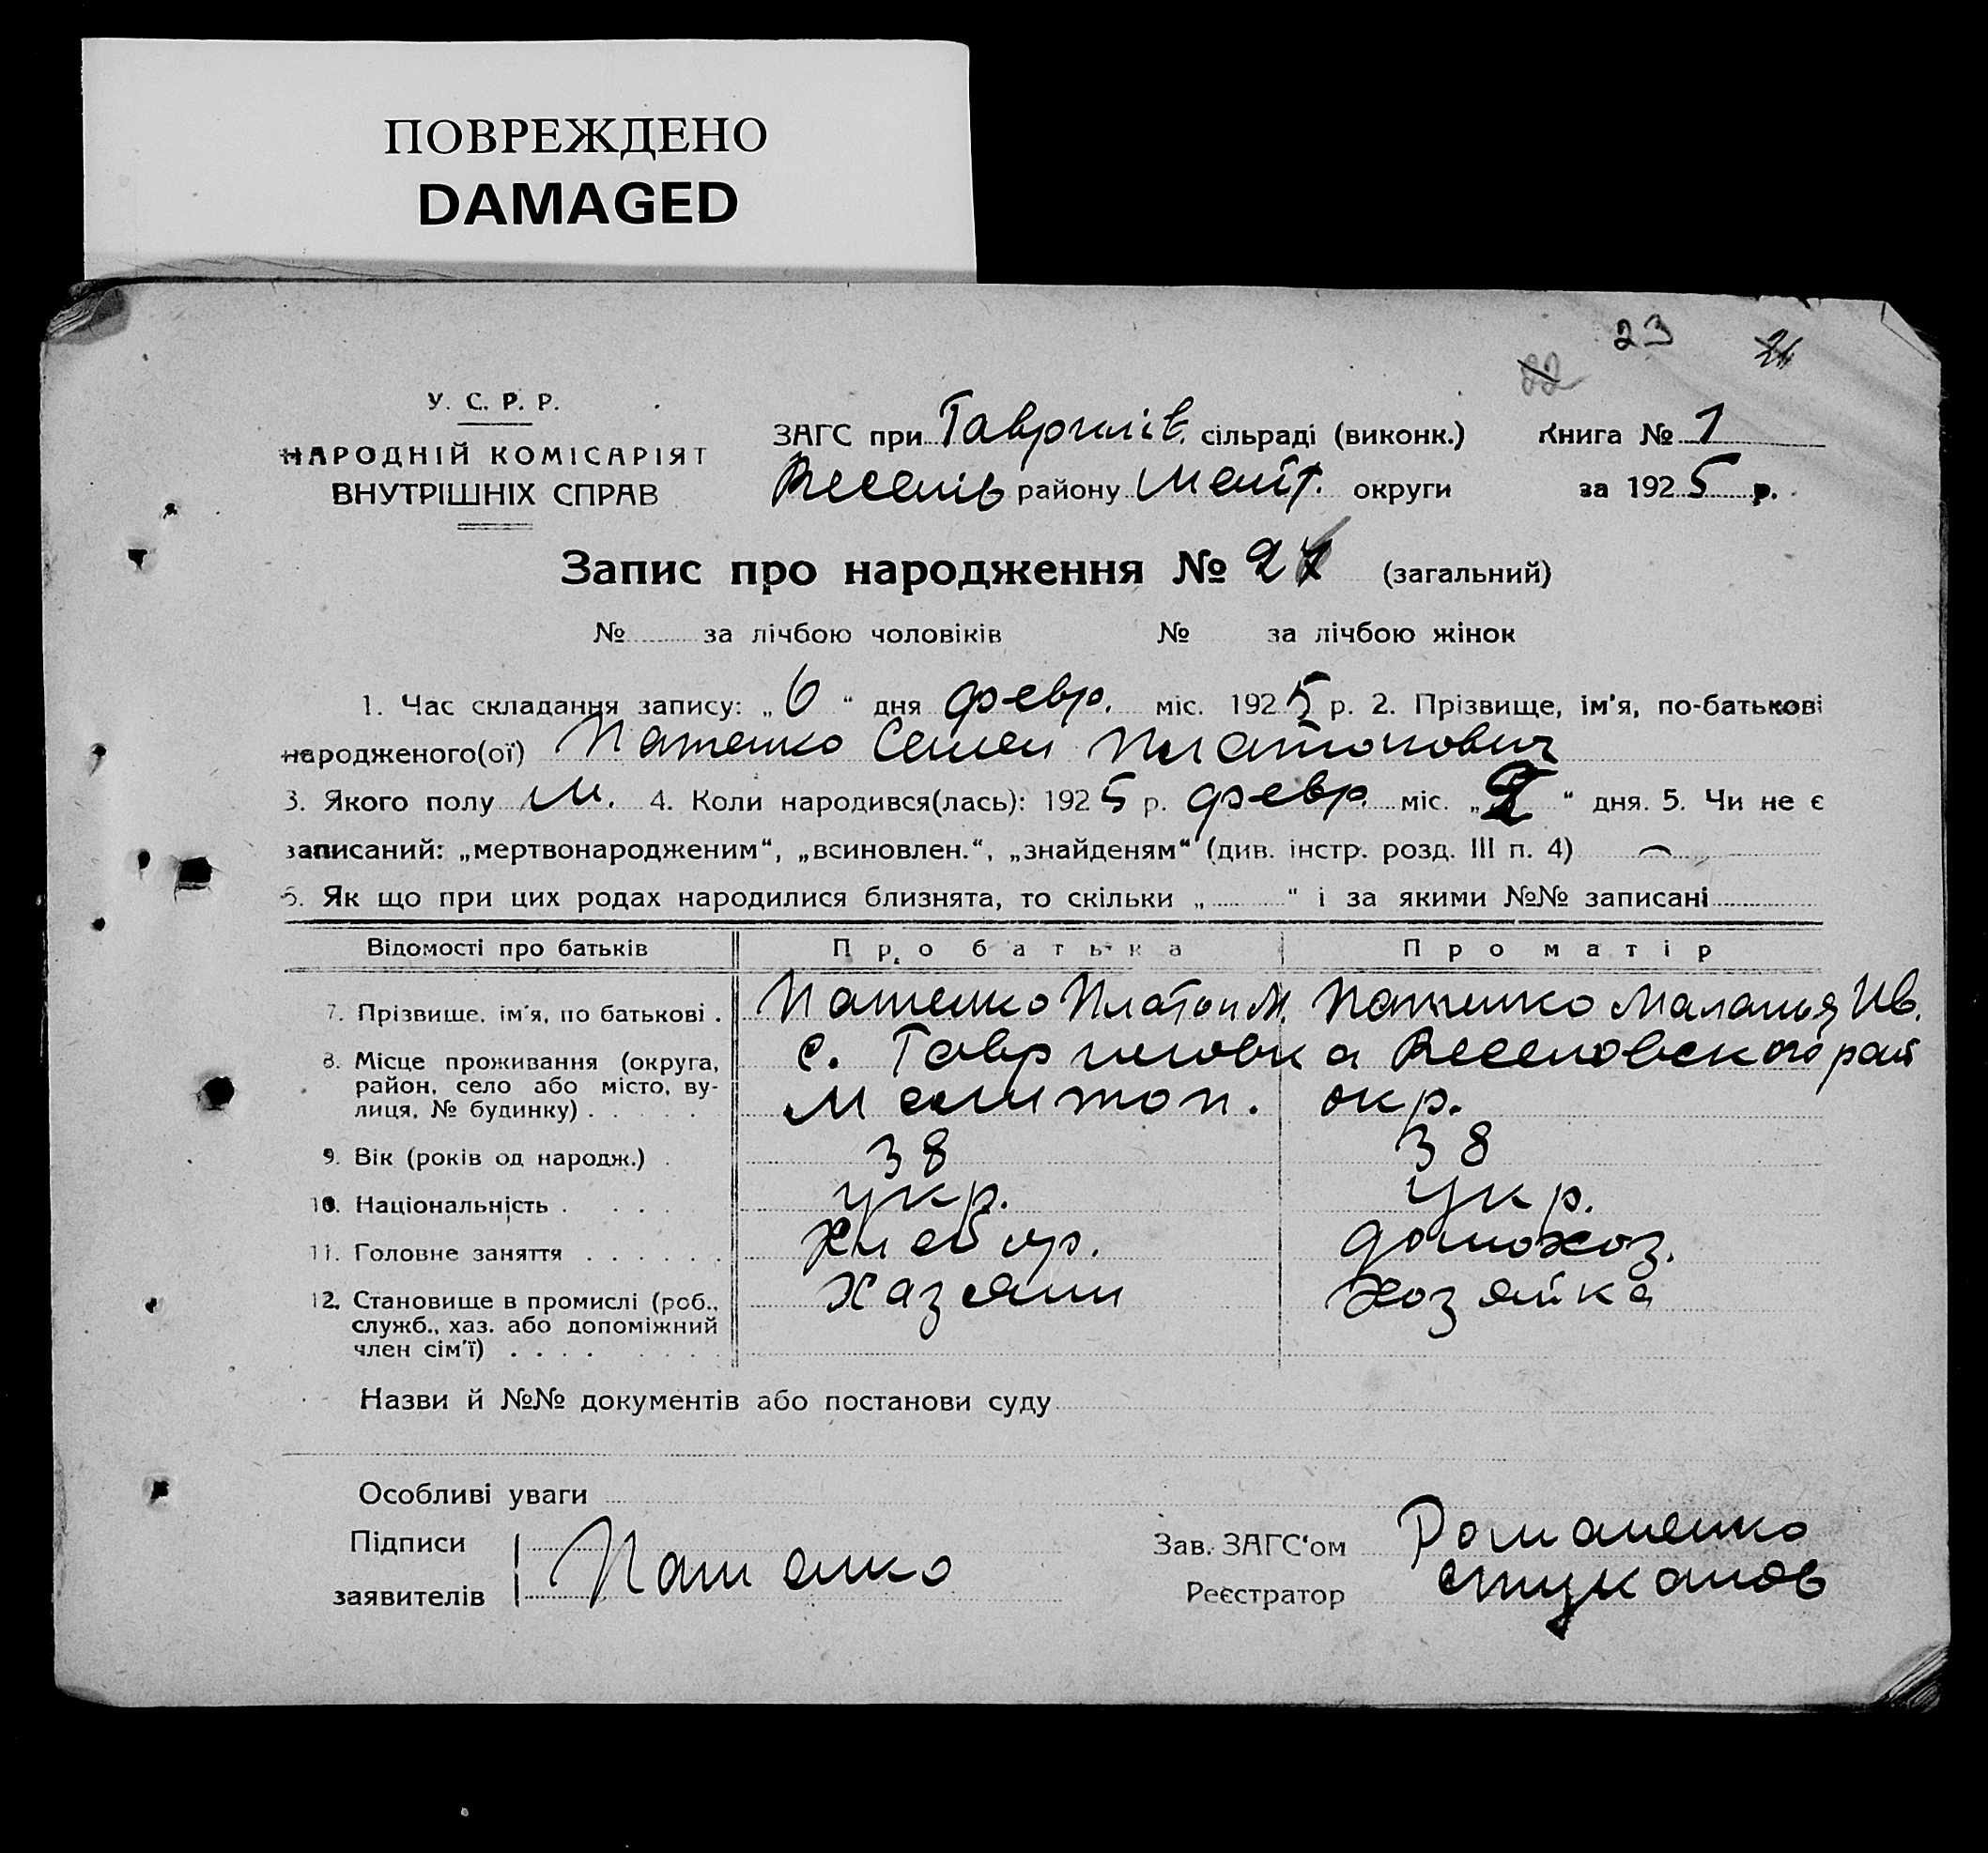 ПОВРЕЖДЕНО
DAMAGED
23
22 24
У. С. Р. Р.
НАРОДНІЙ КОМІСАРІЯТ
ВНУТРІШНІХ СПРАВ
ЗАГС при Гаврилів. сільраді (виконк.) Книга № 1
Веселів району Меліт. округи за 1925 р.
Запис про народження № 2 (загальний)
№ за лічбою чоловіків № за лічбою жінок
1. Час складання запису: „6“ дня февр. міс. 1925 р. 2. Прізвище, ім'я, по-батькові
народженого(ої) Патенко Семен Платонович
3. Якого полу м. 4. Коли народився(лась): 1925 р. февр. міс. „2“ дня. 5. Чи не є
записаний: „мертвонародженим“, „всиновлен.“, „знайденям“ (див. інстр. розд. III п. 4)
6. Як що при цих родах народилися близнята, то скільки „ “ і за якими №№ записані
Відомості про батьків Про батька Про матір
7. Прізвище, ім'я, по батькові . Патенко Платон М. Патенко Маланья Ив.
8. Місце проживання (округа, с. Гавриловка Веселовского рай
район, село або місто, ву-
лиця, № будинку) . . . Мелитоп. окр.
9. Вік (років од народж.) . 38 38
10. Національність . . . . укр. укр.
11. Головне заняття . . . . . . хлебор. домохоз.
12. Становище в промислі (роб., хазяин хозяйка
служб., хаз. або допоміжний
член сім'ї) . . . . . . . .
Назви й №№ документів або постанови суду
Особливі уваги
Підписи
заявителів Патенко
Зав. ЗАГС'ом Романенко
Реєстратор Стуканов